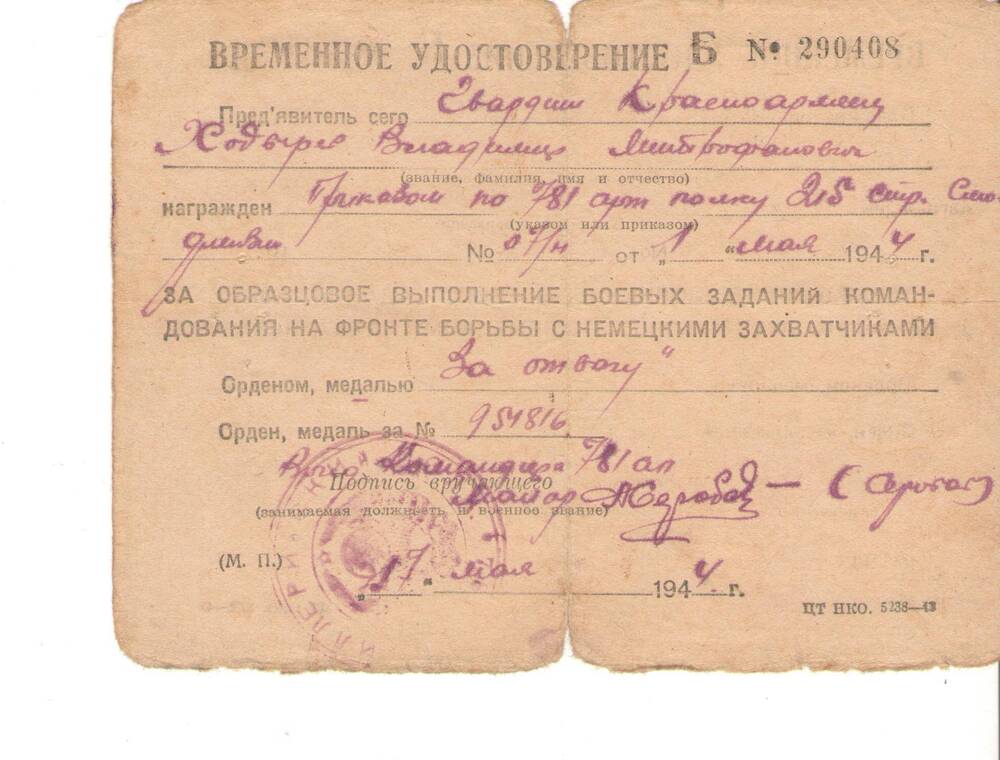 ВРЕМЕННОЕ УДОСТОВЕРЕНИЕ Б № 290408
Пред'явитель сего Гвардии Красноармеец
Ходырев Владимир Митрофанович
(звание, фамилия, имя и отчество)
награжден Приказом по 781 арт полку 215 стр. Смо
(указом или приказом)
ленской № 07/н от „1 “ мая 1944 г.
ЗА ОБРАЗЦОВОЕ ВЫПОЛНЕНИЕ БОЕВЫХ ЗАДАНИЙ КОМАН-
ДОВАНИЯ НА ФРОНТЕ БОРЬБЫ С НЕМЕЦКИМИ ЗАХВАТЧИКАМИ
Орденом, медалью За отвагу"
Орден, медаль за № 954816
Командира 781 ап
Подпись вручающего
майор
(занимаемая должность и военное звание)
(М. П.)
„17“ мая 1944 г.
ЦТ НКО. 5238—43